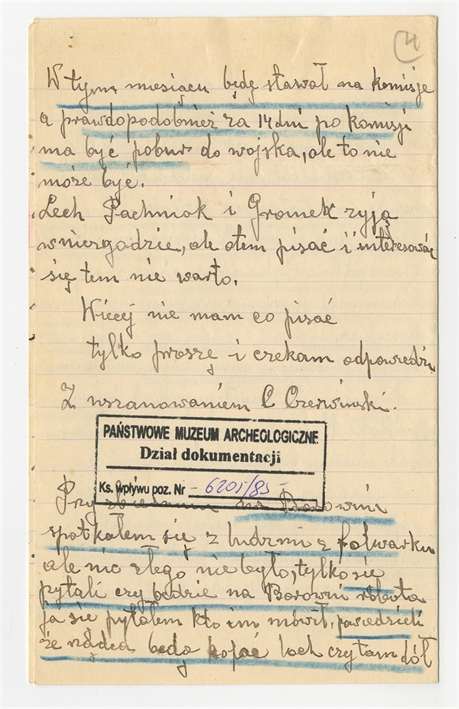 4
W tym miesiącu będę stawał na komisje
a prawdopodobnież za 14 dni po komisji
ma być pobur do wojska, ale to nie
może być.
Lech Pachniok i Gromek zyją
w niezgodzie, ale otem pisać i interesować
się tem nie warto.
Więcej nie mam co pisać
tylko proszę i czekam odpowiedzi
Z uszanowaniem C Czerwinski.
PAŃSTWOWE MUZEUM ARCHEOLOGICZNE
Dział dokumentacji
Ks. wpływu poz. Nr - 6201/85 -
Przy na Borowni
spotkałem się z ludzmi z folwarku
ale nic złego nie było, tylko się
pytali czy będzie na Borowni robota
ja sie pytałem kto im mówił, powiedzieli
że będą kopać loch czy tam dół